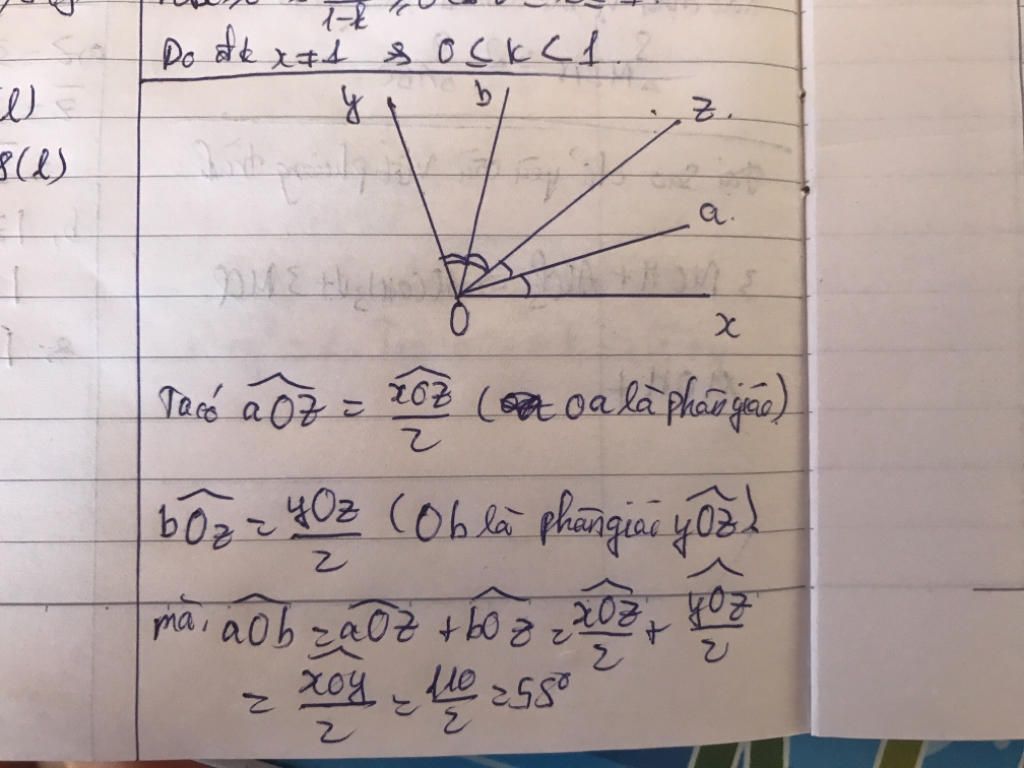 1-k
l)
Do đk x ≠ 1 => 0 ≤ k < 1.
8(l)
y b z.
a.
O x
Ta có aOz = xOz/2 (Oa là phân giác)
bOz = yOz/2 (Ob là phân giác yOz)
mà, aOb = aOz + bOz = xOz/2 + yOz/2
= xOy/2 = 110/2 = 55°